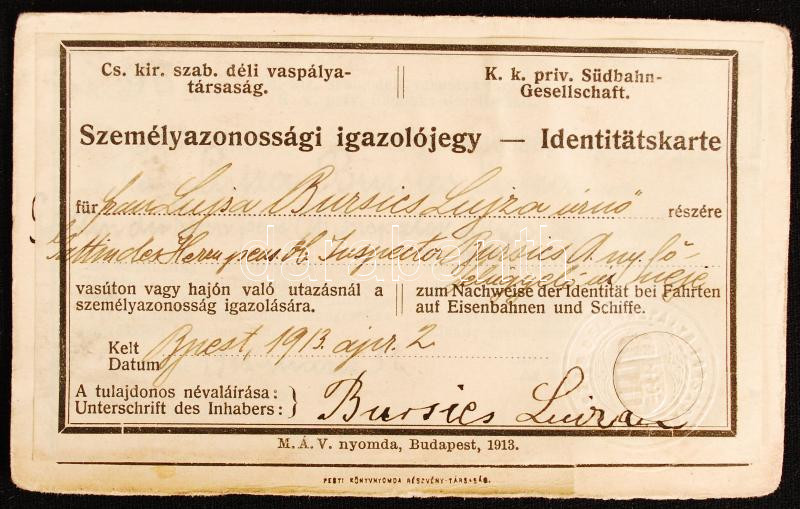 Cs. kir. szab. déli vaspálya-
társaság.
K. k. priv. Südbahn-
Gesellschaft.
Személyazonossági igazolójegy — Identitätskarte
für Frau Lujsa Bursics Lujza úrnő részére
Gattin des Herrn pens. H. Inspector Bursics A. ny. fő-
felügyelő úr neje
vasúton vagy hajón való utazásnál a
személyazonosság igazolására.
zum Nachweise der Identität bei Fahrten
auf Eisenbahnen und Schiffe.
Kelt
Datum
Bpest, 1913. ápr. 2
A tulajdonos névaláírása:
Unterschrift des Inhabers:
Bursics Lujza
M. Á. V. nyomda, Budapest, 1913.
PESTI KÖNYVNYOMDA RÉSZVÉNY-TÁRSASÁG.
darabanth